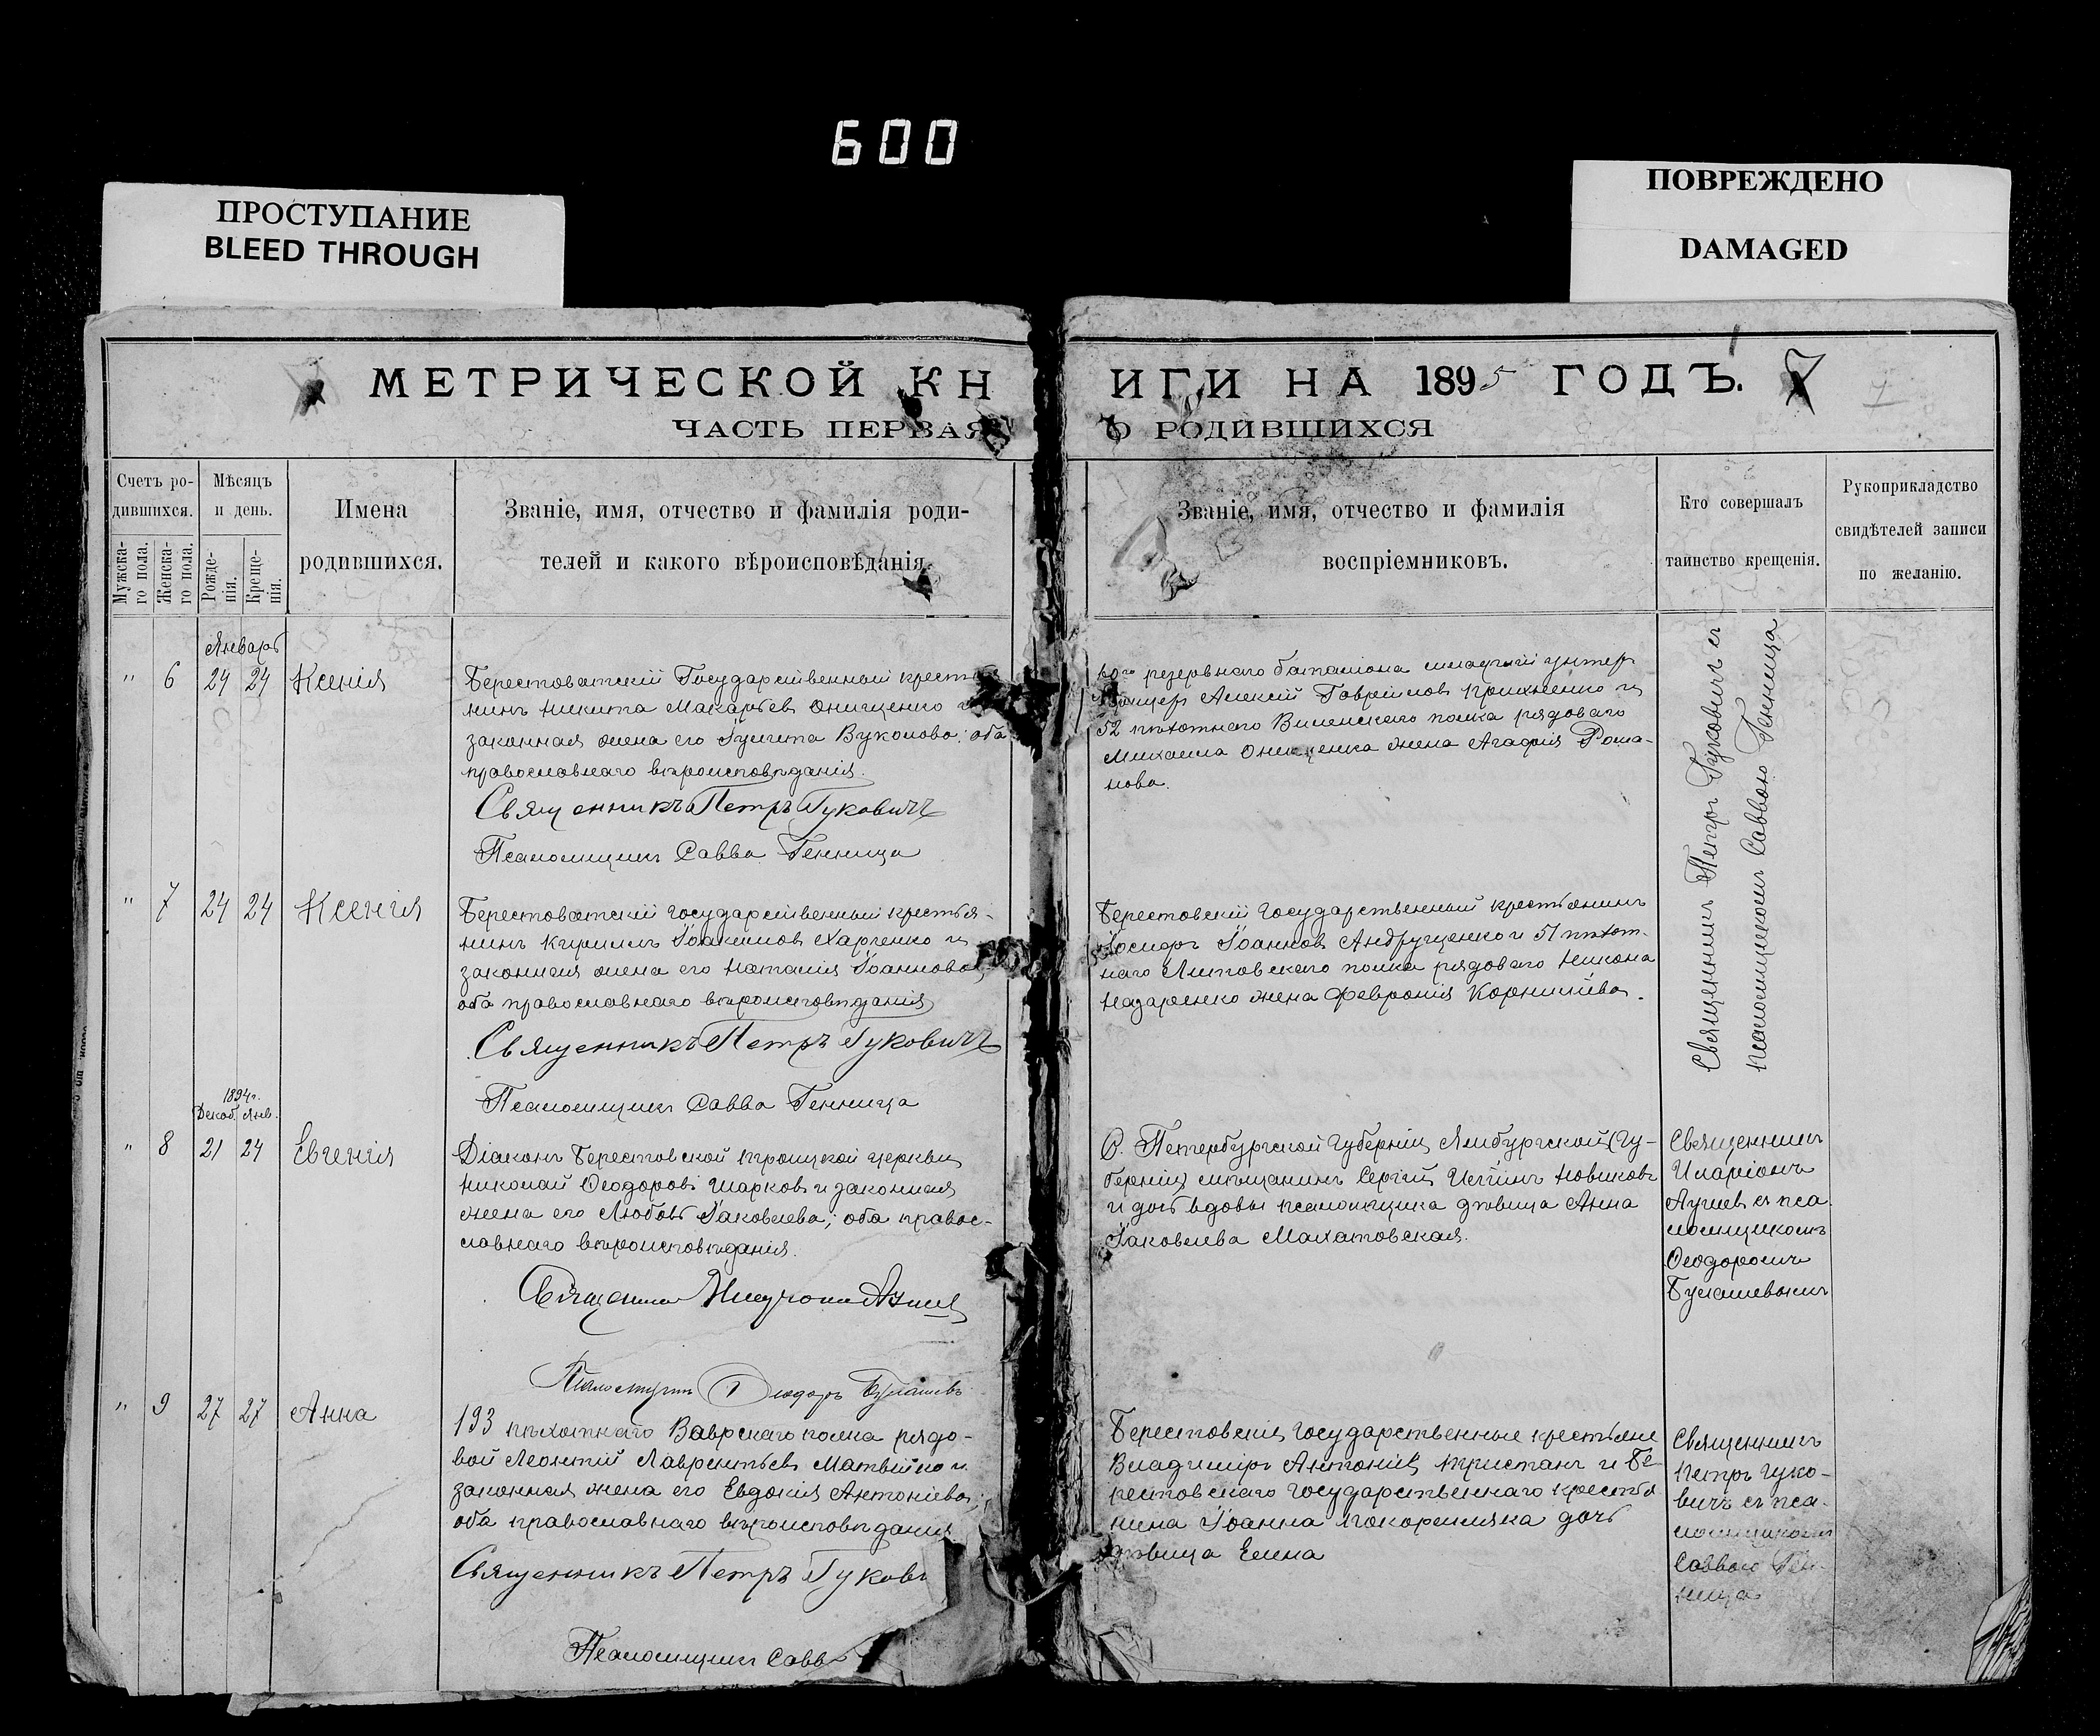 600
ПРОСТУПАНИЕ
BLEED THROUGH
ПОВРЕЖДЕНО
DAMAGED
МЕТРИЧЕСКОЙ КНИГИ НА 1895 ГОДЪ. 7
ЧАСТЬ ПЕРВАЯ О РОДИВШИХСЯ
Счетъ ро-
дившихся.
Мужска-
го пола.
Женска-
го пола.
Мѣсяцъ
и день.
Рожде-
нія.
Креще-
нія.
Имена
родившихся.
Званіе, имя, отчество и фамилія роди-
телей и какого вѣроисповѣданія.
Званіе, имя, отчество и фамилія
воспріемниковъ.
Кто совершалъ
таинство крещенія.
Рукоприкладство
свидѣтелей записи
по желанію.
Январь
" 6 24 24 Ксенія
Берестоватскій Государственный крестья
нинъ Никита Макарьевъ Онищенко и
законная жена его Іулитта Вуколова: оба
православнаго вѣроисповѣданія.
Священникъ Петръ Гуковичъ
Псаломщикъ Савва Генница
резервнаго баталіона младшій унтеръ
Алексій Гавріиловъ и
52 пѣхотнаго Виленскаго полка рядоваго
Михаила Онищенка жена Агафія Рома-
нова.
Священникъ Петръ Гуковичъ съ
псаломщикомъ Саввою Генница
" 7 24 24 Ксенія
Берестоватскій государственный крестья-
нинъ Кириллъ Іоакимовъ Харченко и
законная жена его Наталія Іоаннова;
оба православнаго вѣроисповѣданія
Священникъ Петръ Гуковичъ
Псаломщикъ Савва Генница
Берестовскій государственный крестьянинъ
Іоанновъ Андрущенко и 51 пѣхот-
наго Литовскаго полка рядоваго Никона
Назаренко жена Февронія Корниліева.
1894г.
Декаб. Янв.
" 8 21 24 Евгенія
Діаконъ Берестовской Троицкой церкви
Николай Ѳеодоровъ Шарковъ и законная
жена его Любовь Іаковлева; оба правос-
лавнаго вѣроисповѣданія.
Священникъ
Псаломщикъ Ѳеодоръ Булашевъ
С. Петербургской губерніи, Ямбургской (гу-
берніи) мѣщанинъ Сергій Новиковъ
и дочь вдовы псаломщика дѣвица Анна
Іаковлева Малатовская.
Священникъ
Иларіонъ
съ пса-
ломщикомъ
Ѳеодоромъ
Булашевымъ
" 9 27 27 Анна
193 пѣхотнаго Ваврскаго полка рядо-
вой Леонтій Лаврентьевъ Матвійко и
законная жена его Евдокія Антоніева;
оба православнаго вѣроисповѣданія
Священникъ Петръ Гукови
Псаломщикъ Савв
Берестовскіе государственные крестьяне
Владиміръ Антоніевъ Тристанъ и Бе-
рестовскаго государственнаго крестья
нина Іоанна дочь
дѣвица Елена
Священникъ
Петръ Гуко-
вичъ съ пса-
ломщикомъ
Саввою Ген-
ница